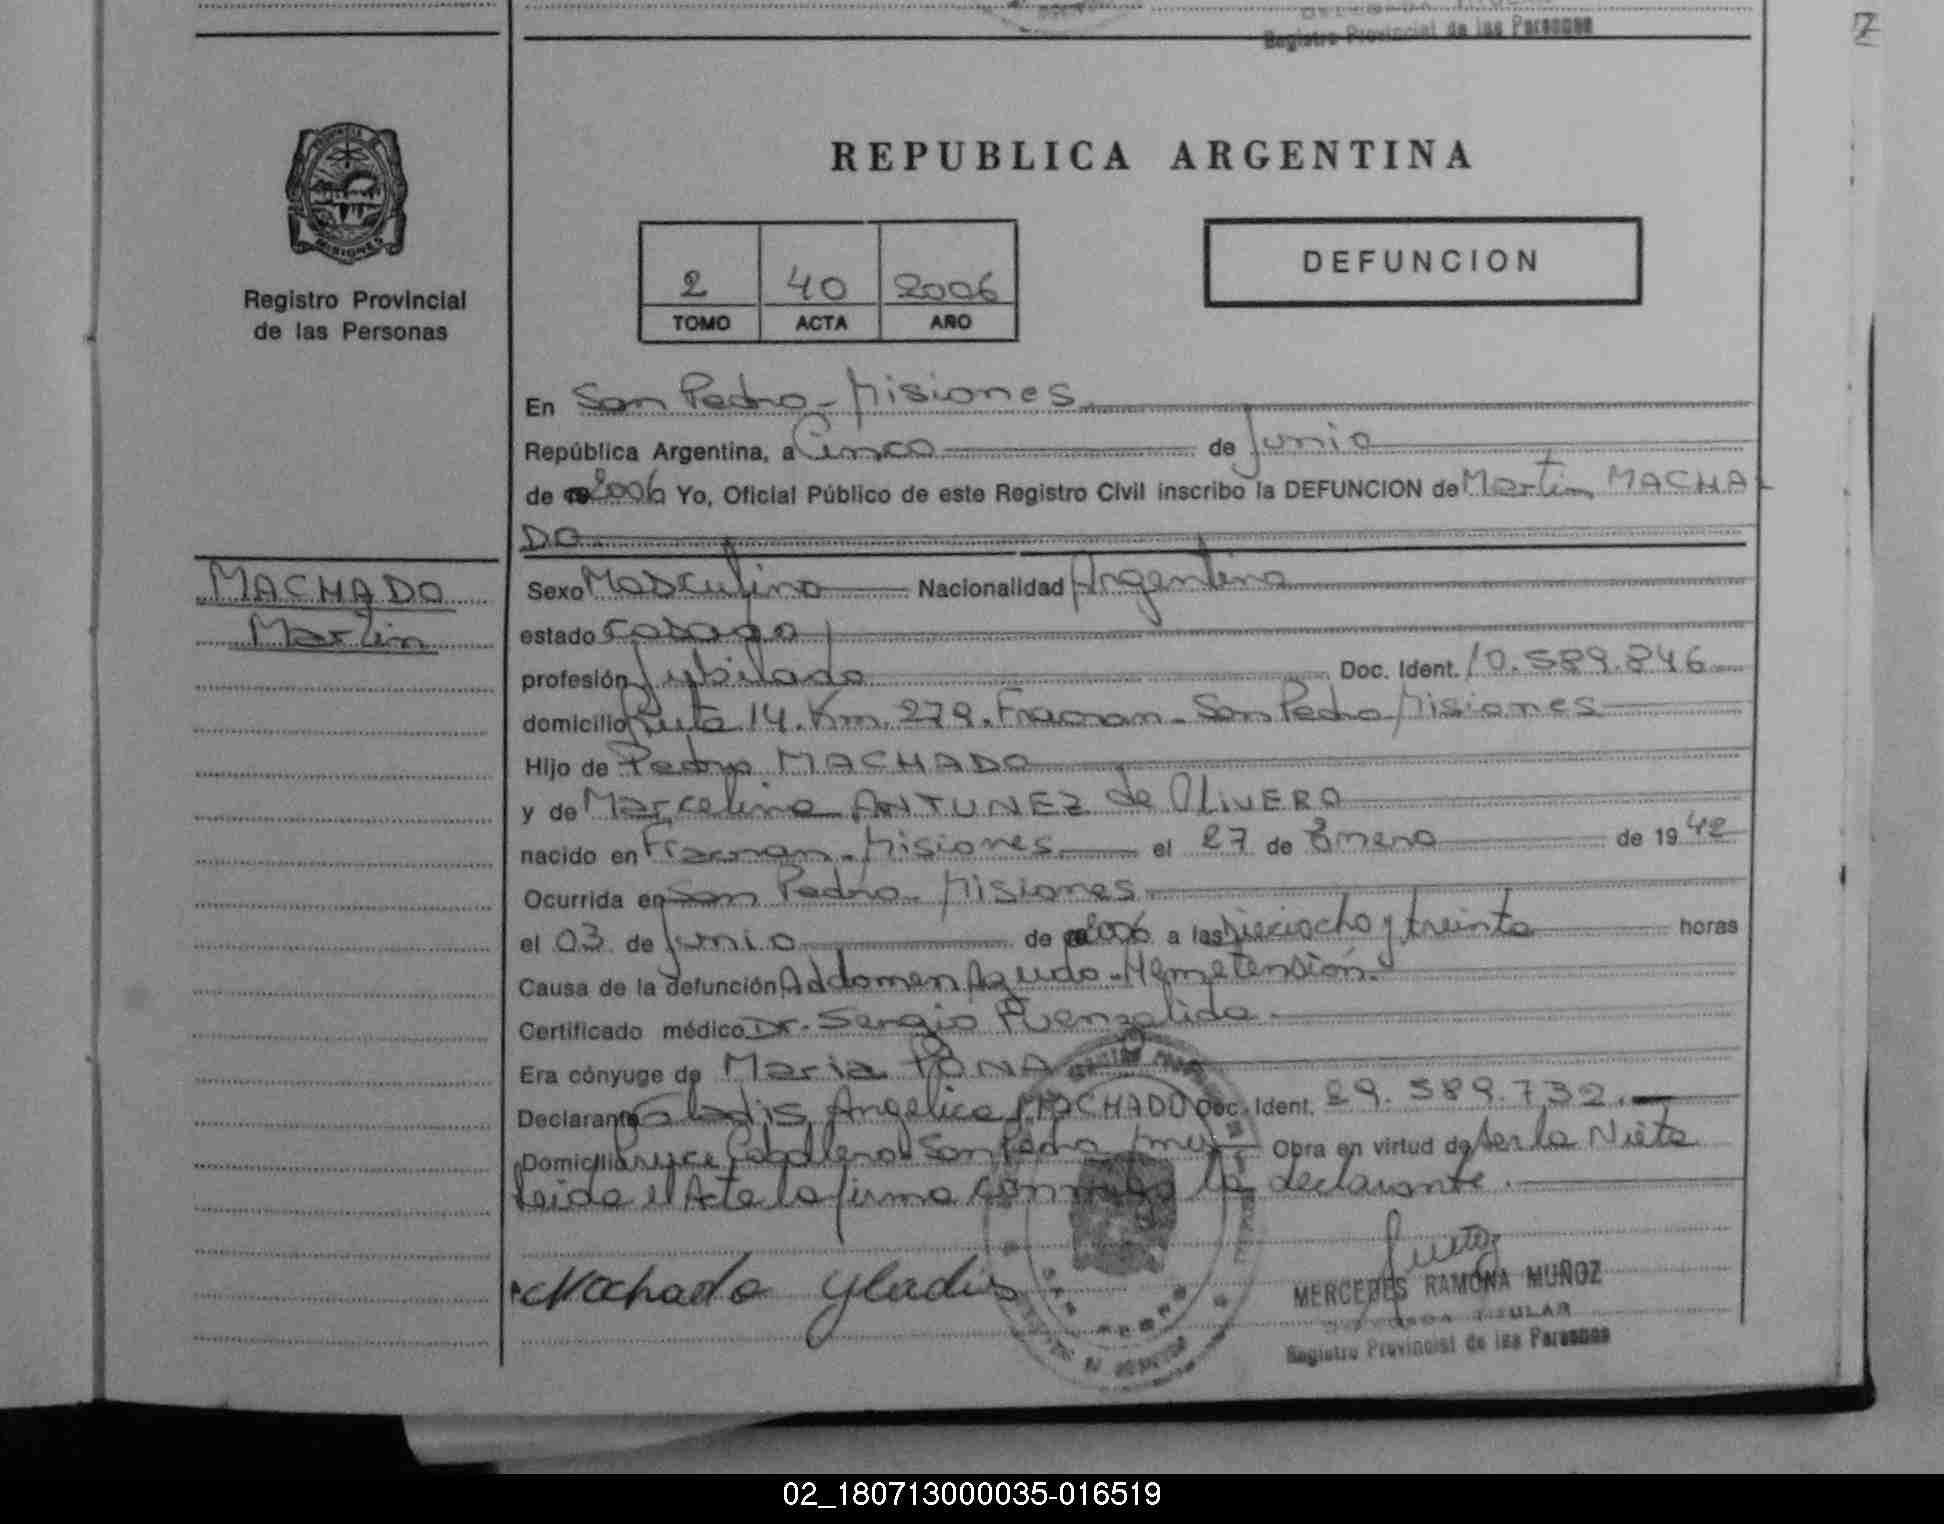 Registro Provincial de las Personas
Z
PROVINCIA
MISIONES
Registro Provincial
de las Personas
REPUBLICA ARGENTINA
2 40 2006
TOMO ACTA AÑO
DEFUNCION
En San Pedro - Misiones
República Argentina, a Cinco de Junio
de 2006 Yo, Oficial Público de este Registro Civil inscribo la DEFUNCION de Martin MACHA
DO
MACHADO
Martin
Sexo Masculino Nacionalidad Argentina
estado casado
profesión Jubilado Doc. Ident. 10.589.846
domicilio Ruta 14. Km. 279. Fracran - San Pedro Misiones
Hijo de Pedro MACHADO
y de Marcelina ANTUNEZ de OLIVERA
nacido en Fracran - Misiones el 27 de Enero de 1942
Ocurrida en San Pedro - Misiones
el 03 de Junio de 2006 a las dieciocho y treinta horas
Causa de la defunción Addomen Agudo - Hemetensión.
Certificado médico Dr. Sergio Fuenzalida.
Era cónyuge de Maria PONA
Declarante Gladis Angelica MACHADO Doc. Ident. 29.589.732.
Domicilio Caballero San Pedro Obra en virtud de ser la Nieta
Leida el Acta la firma conmigo la declarante.
Machado Gladis
MERCEDES RAMONA MUÑOZ
DELEGADA TITULAR
Registro Provincial de las Personas
02_180713000035-016519